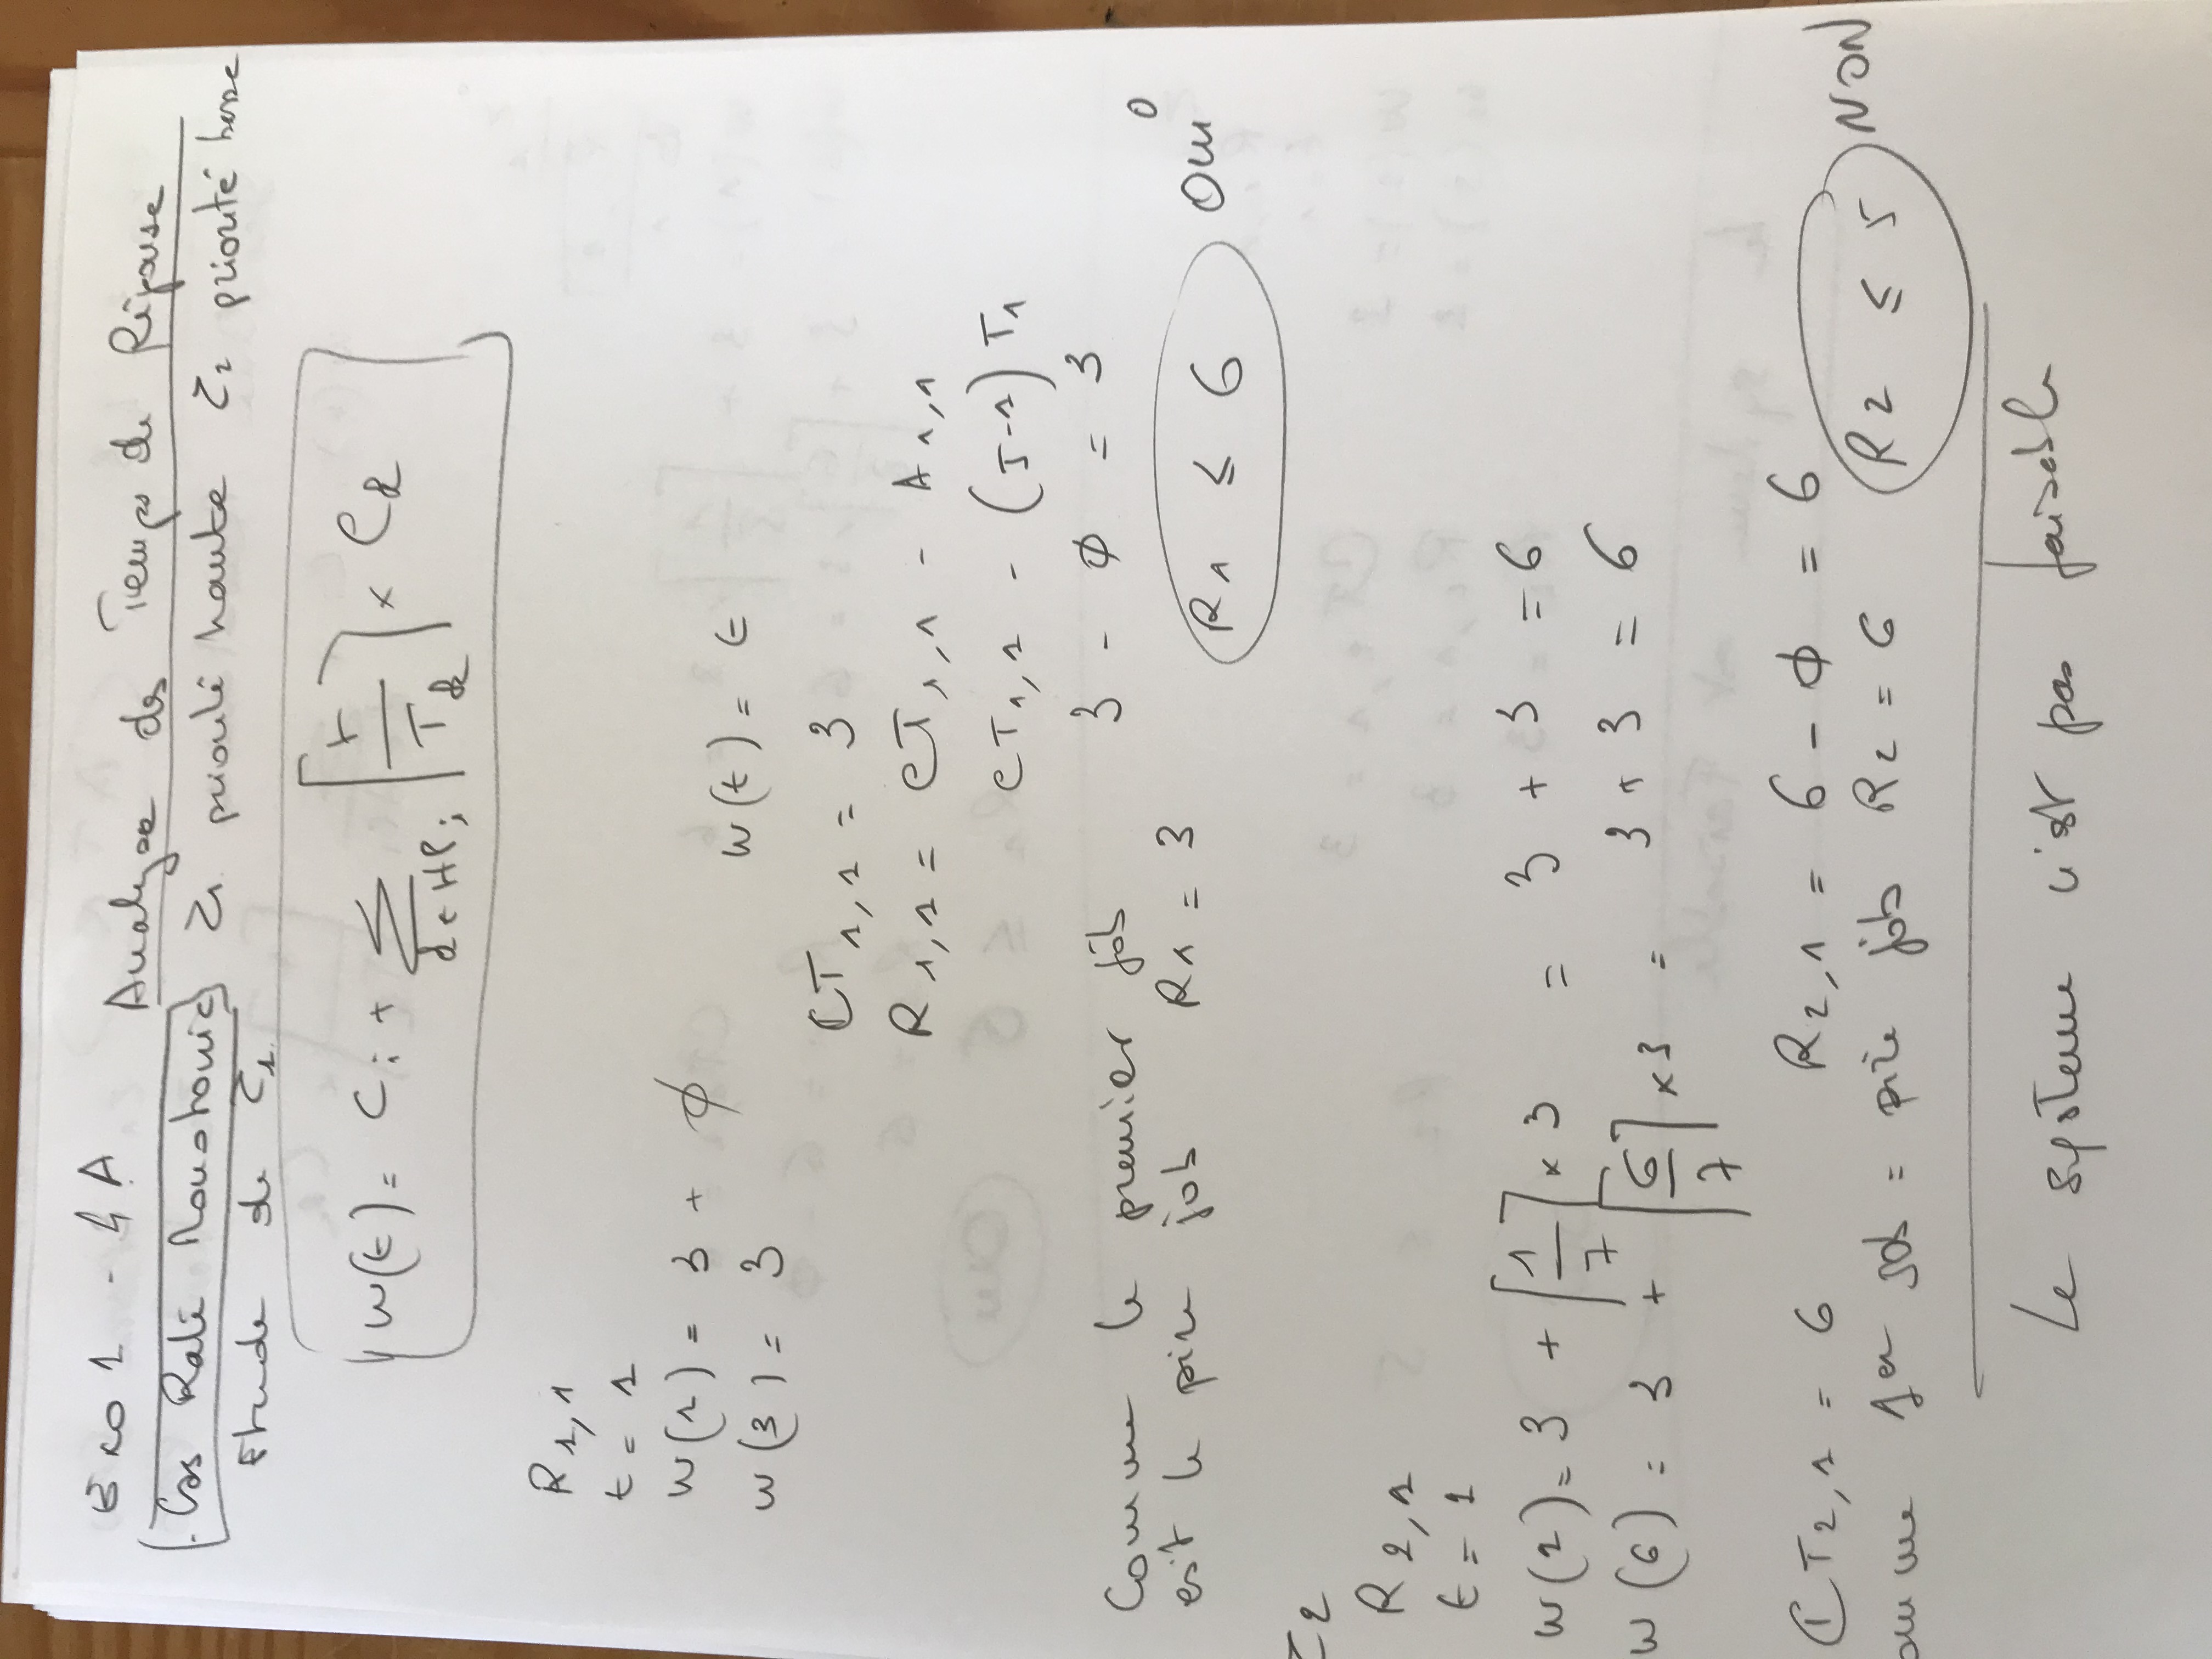 Exo 1 - 4A Analyse des Temps de Réponse
Cas Rate Monotonic τ1 priorité haute τ2 priorité basse
Etude de τ1
w(t) = Ci + ∑ k∈HPi ⌈t/Tk⌉ × Ck
R1,1
t = 1
w(1) = 3 + ϕ w(t) = t
w(3) = 3
CT1,1 = 3
R1,1 = CT1,1 - A1,1
CT1,1 - (J-1)T1
3 - ϕ = 3
Comme le premier job
est le pire job R1 = 3 R1 ≤ 6 OUI
τ2
R2,1
t = 1
w(1) = 3 + ⌈1/7⌉ × 3 = 3 + 3 = 6
w(6) = 3 + ⌈6/7⌉ × 3 = 3 + 3 = 6
CT2,1 = 6 R2,1 = 6 - ϕ = 6
omme 1er job = pire job R2 = 6 R2 ≤ 5 NON
Le système n'est pas faisable